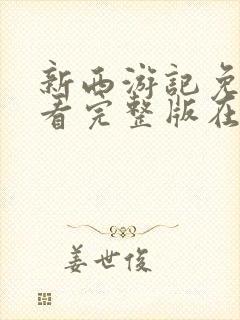 新西游记免
看完整版在
姜世俊